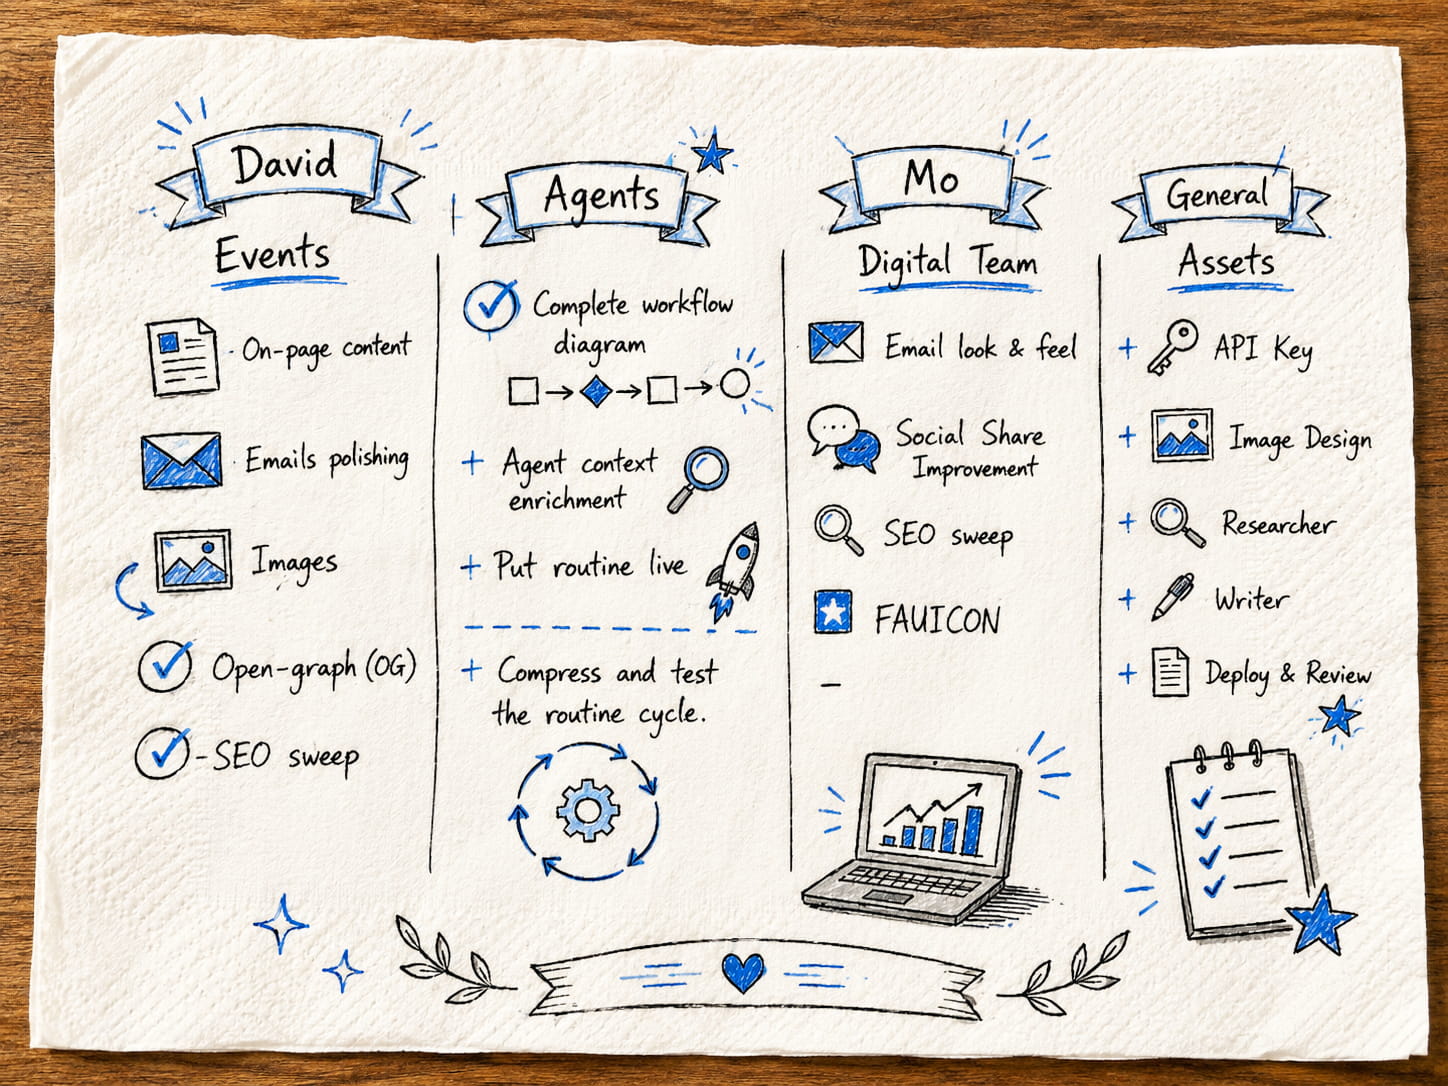 David
Events
- On-page content
- Emails polishing
Images
Open-graph (OG)
- SEO sweep
Agents
Complete workflow
diagram
+ Agent context
enrichment
+ Put routine live
+ Compress and test
the routine cycle.
Mo
Digital Team
Email look & feel
Social Share
Improvement
SEO sweep
FAUICON
–
General
Assets
+ API Key
+ Image Design
+ Researcher
+ Writer
+ Deploy & Review